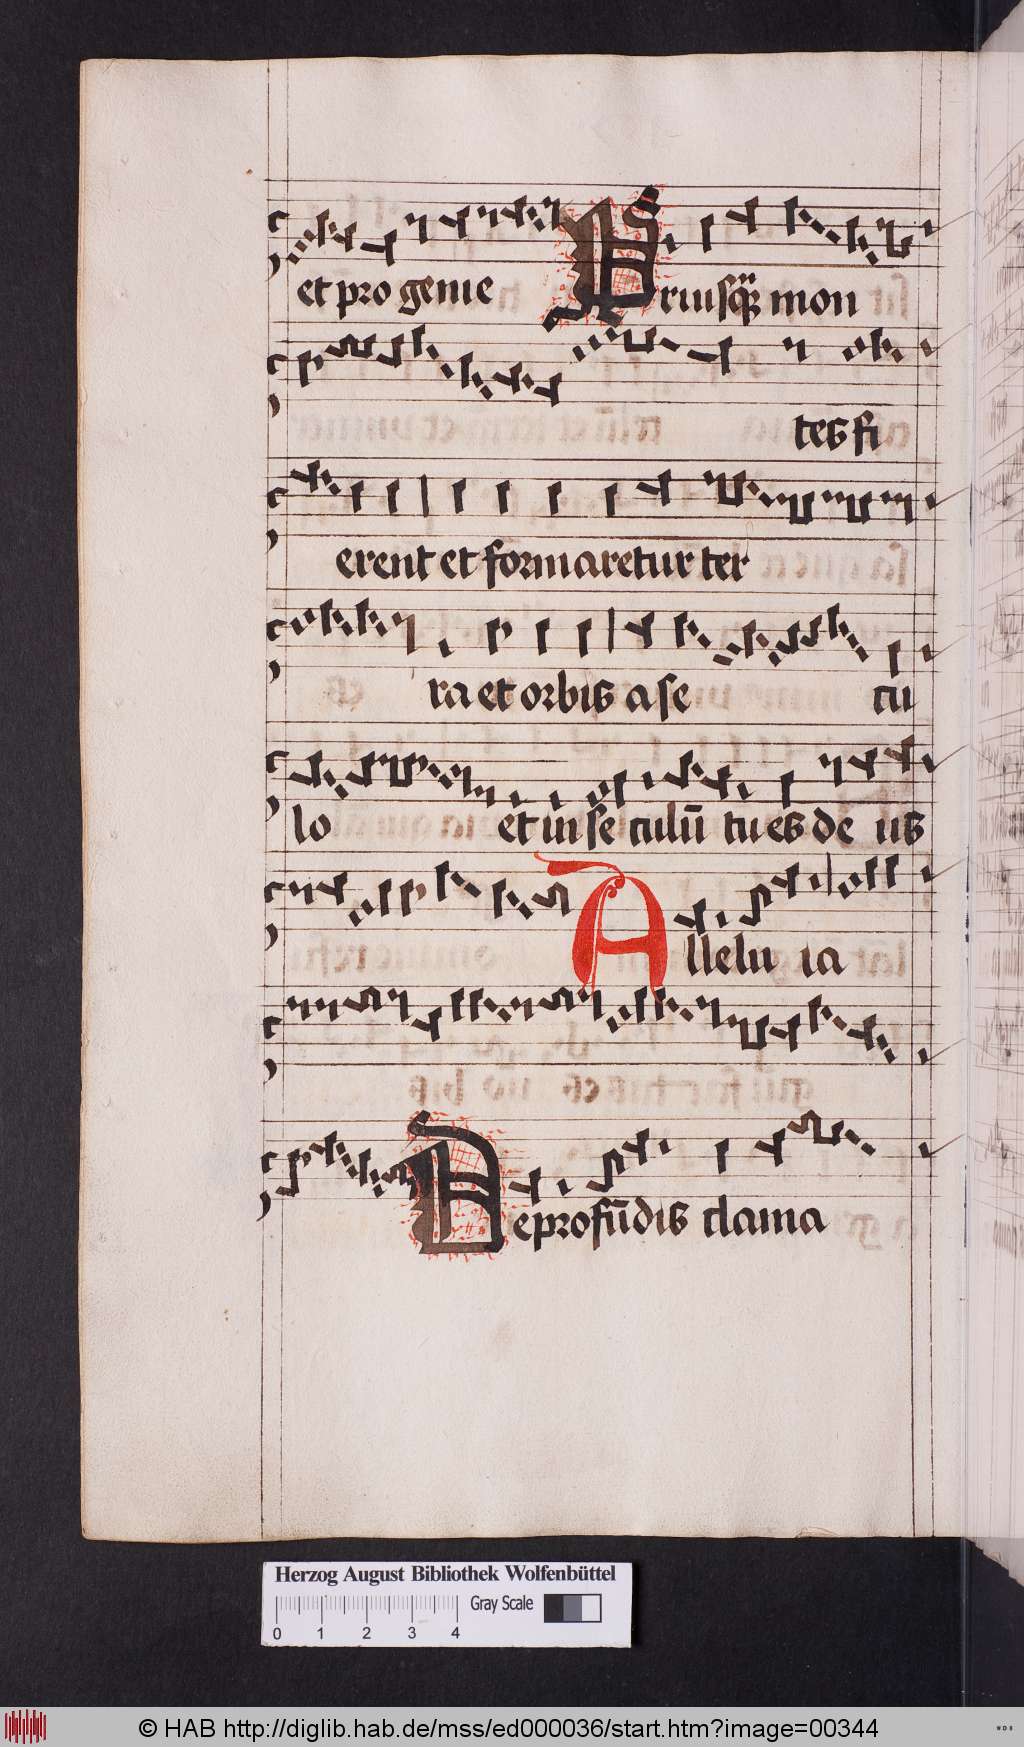 et pro genie Priusq̃ mon
tes fi
erent et formaretur ter
ra et orbis a se cu
lo et in se culũ tu es de us
Allelu ia
De profũdis clama
Herzog August Bibliothek Wolfenbüttel
Gray Scale
0 1 2 3 4
© HAB http://diglib.hab.de/mss/ed000036/start.htm?image=00344